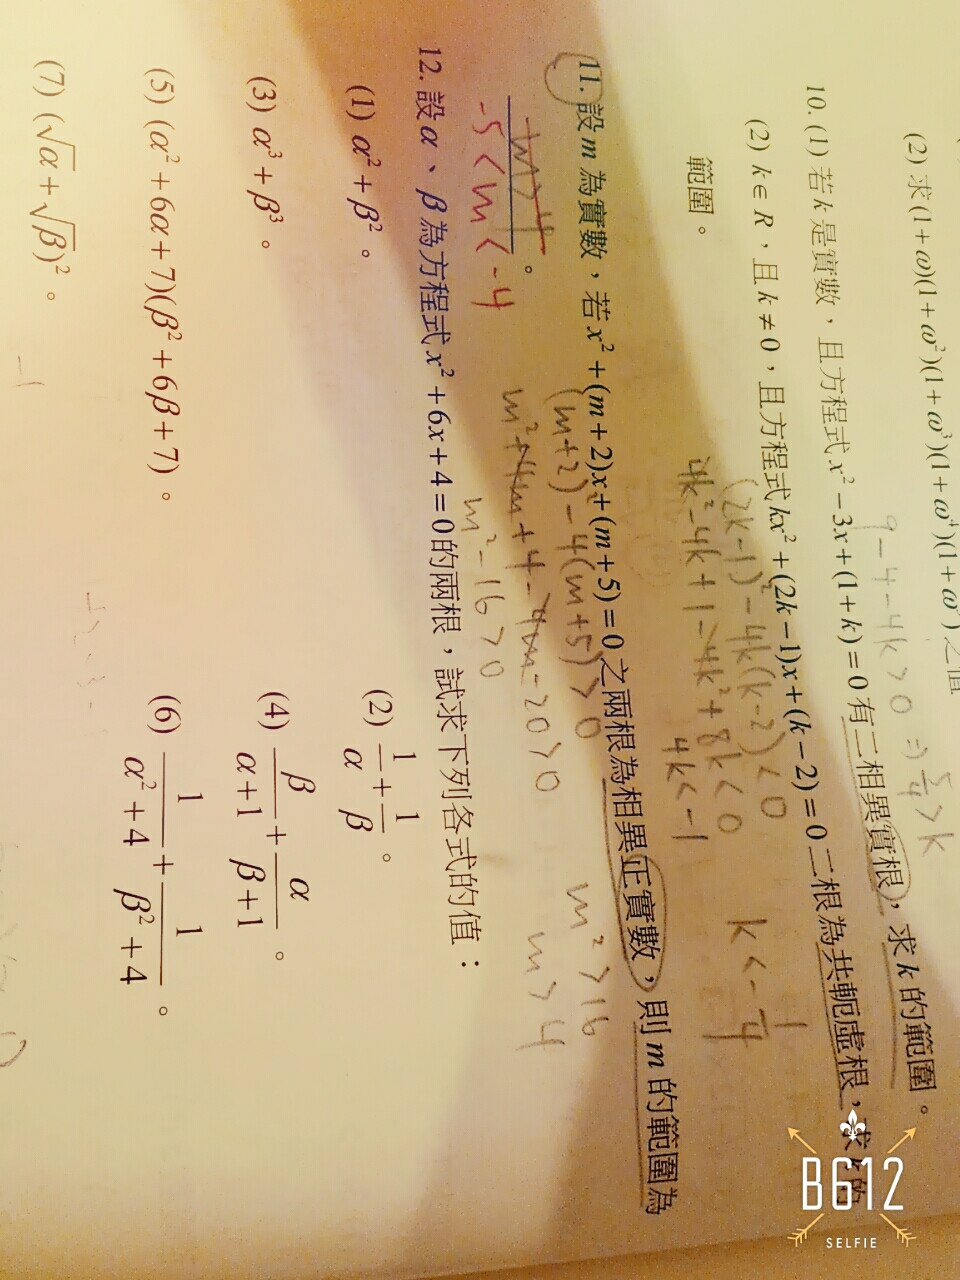 (2) 求(1+ω)(1+ω²)(1+ω³)(1+ω⁴)(1+ω⁵)之值
9-4-4k>0 ⇒ 5/4>k
10. (1) 若k是實數，且方程式x²-3x+(1+k)=0有二相異實根，求k的範圍。
(2) k∈R，且k≠0，且方程式kx²+(2k-1)x+(k-2)=0二根為共軛虛根，求k的
範圍。
(2k-1)²-4k(k-2)<0
4k²-4k+1-4k²+8k<0
4k<-1
k<-1/4
11. 設m為實數，若x²+(m+2)x+(m+5)=0之兩根為相異正實數，則m的範圍為
m>4。
-5<m<-4
(m+2)²-4(m+5)>0
m²+4m+4-4m-20>0
m²-16>0
m²>16
m>4
12. 設α、β為方程式x²+6x+4=0的兩根，試求下列各式的值：
(1) α²+β²。
(2) 1/α+1/β。
(3) α³+β³。
(4) β/(α+1)+α/(β+1)。
(5) (α²+6α+7)(β²+6β+7)。
(6) 1/(α²+4)+1/(β²+4)。
(7) (√α+√β)²。
B612
SELFIE